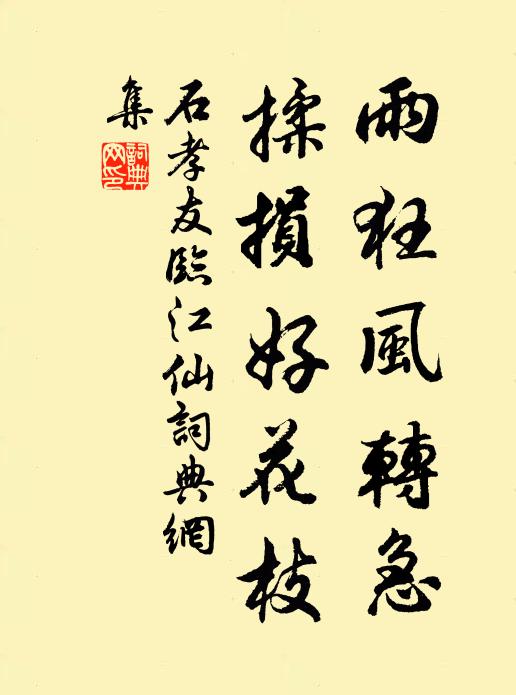 雨狂風轉急
揉損好花枝
石孝友臨江仙詞典網
集
詞典網印